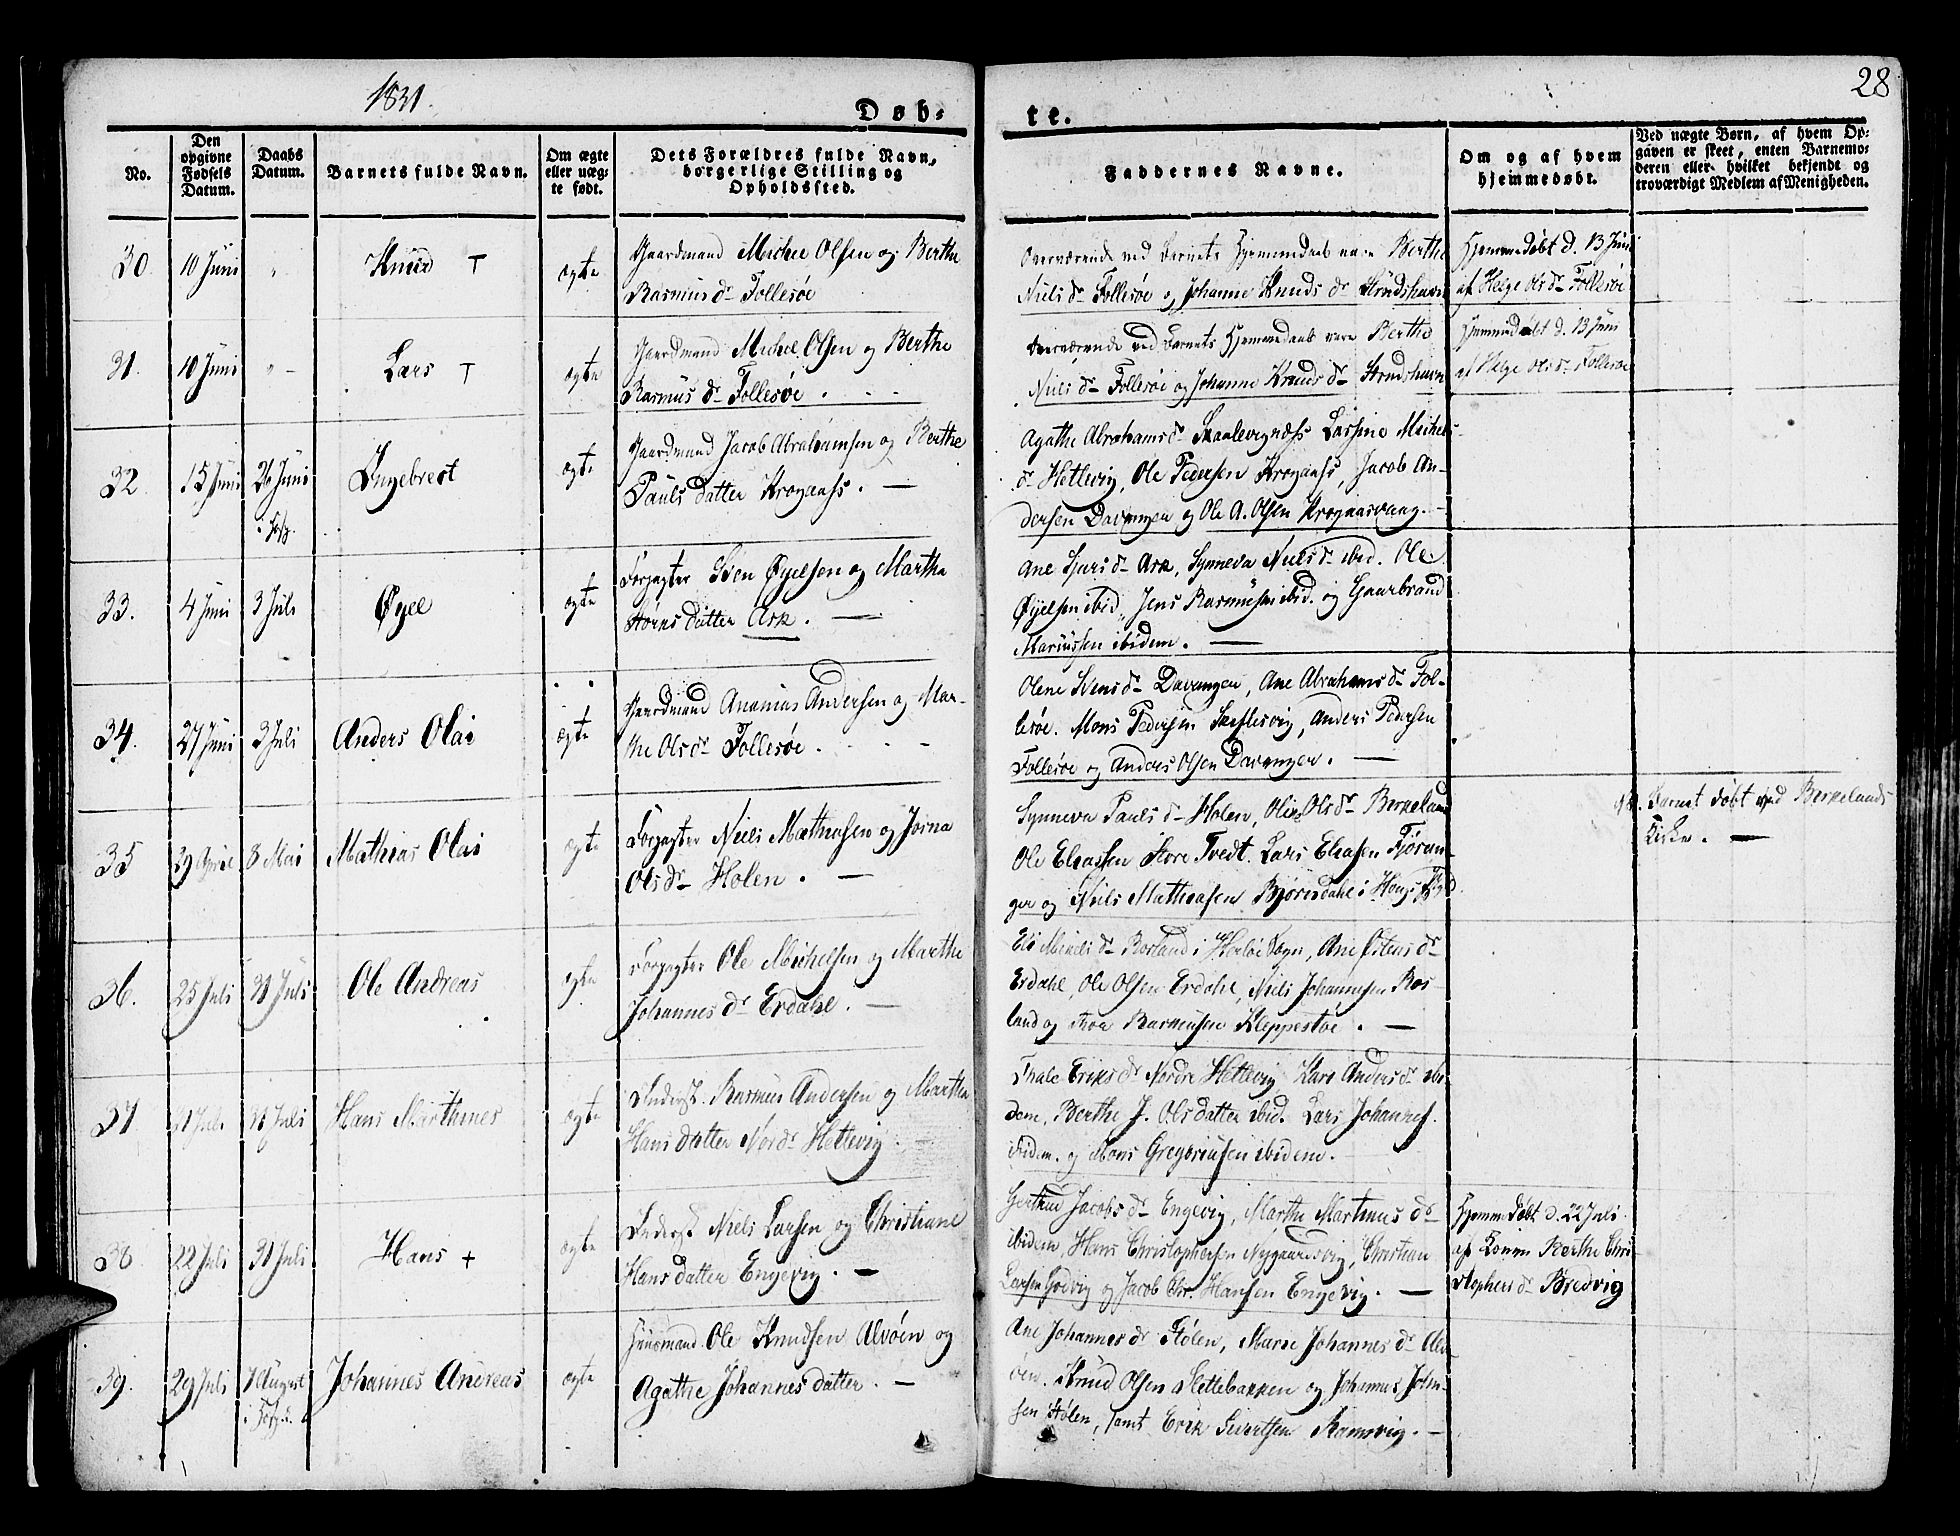 1831.
28
Døb-
te.
No.
Den opgivne Fødsels Datum.
Daabs Datum.
Barnets fulde Navn.
Om ægte eller uægte født.
Dets Forældres fulde Navn, borgerlige Stilling og Opholdssted.
Faddernes Navne.
Om og af hvem hjemmedøbt.
Ved uægte Børn, af hvem Opgaven er skeet, enten Barnemoderen eller hvilket bekjendt og troværdigt Medlem af Menigheden.
30. 10 Juni " Knud + ægte
Gaardmand Michel Olsen og Berthe
Rasmus dr Follesøe
Overværende ved Barnets Hjemmedaab vare Berthe
Niels dr Follesøe og Johanne Knuds dr Strudshavn
Hjemmedøbt d. 13 Juni
af Helge Ols dr Follesøe
31. 10 Juni " Lars + ægte
Gaardmand Michel Olsen og Berthe
Rasmus dr Follesøe.
Overværende ved Barnets Hjemmedaab vare Berthe
Niels dr Follesøe og Johanne Knuds dr Strudshavn
Hjemmedøbt d. 13 Juni
af Helge Ols dr Follesøe
32. 15 Juni 26 Juni Engebreet ægte
Gaardmand Jacob Abrahamsen og Berthe
Pauls datter Krogaas.
Agathe Abrahams dr Skaalevignæss Lassine Michels
dr Hetlevig, Ole Pedersen Krogaass, Jacob An-
dersen Davangen og Ole A. Olsen Krogaasvaag.
33. 4 Juni 3 Juli Øyel ægte
Forpagter Sven Øyelsen og Martha
Størks datter Ask.
Ane Sjurs dr Ask, Synneva Niels dr ibid. Ole
Øyelsen ibid, Jens Rasmusen ibid. og Gaarbrand
Mariussen ibidem.
34. 27 Juni 3 Juli Anders Olai ægte
Gaardmand Ananias Andersen og Mar-
the Ols dr Follesøe.
Olene Svens dr Davangen, Ane Abrahams dr Fol-
lesøe. Mons Pedersen Skiftesvig, Anders Pedersen
Follesøe og Anders Olsen Davangen.
35 29 April 8 Mai Mathias Olai ægte
Forpagter Niels Mathiasen og Jorna
Ols dr Holen.
Synneva Pauls dr Holen, Oline Ols dr Berkeland
Ole Eliassen Store Tvedt. Lars Eliasen Fjøran-
ger og Niels Mathiasen Bjørndahl i Hougs
Barnet døbt ved Berkelands
Kirke.
36. 25 Juli 31 Juli Ole Andreas ægte
Forpagter Ole Michelsen og Marthe
Johannes dr Erdahl.
Eli Niels dr Rosland i Herløe Sogn, Ane Østens dr
Erdahl, Ole Olsen Erdahl, Niels Johannesen Ros-
land og Rasmusen Kleppestøe.
37 Juli 31 Juli Hans Marthines ægte
Inderst. Rasmus Andersen og Martha
Hans datter Nordr Hetlevig.
Thale Eriks dr Nordre Hetlevig Kari Anders dr ibi-
dem, Berthe J. Ols datter ibid. Lars Johannes.
ibidem. og Mons Gregoriusen ibidem.
38 22 Juli 31 Juli Hans + ægte
Inderst Niels Larsen og Christiane
Hans datter Engevig.
Gerthrud Jacobs dr Engevig, Martha Martinus dr
ibidem, Hans Christophersen Nygaardsvig, Christian
Larsen Godvig og Jacob Chr. Hansen Engevig.
Hjemmedøbt d. 22 Juli
af Konen Berthe Chri-
stophers dr Bredvig
39. 29 Juli 7 August Johannes Andreas ægte
Huusmand Ole Knudsen Alvøen og
Agathe Johannes datter.
Ane Johannes dr Stølen, Marie Johannes dr Alv-
øen. Knud Olsen Slettebakken og Johannes John-
sen Stølen, samt Erik Sivertsen Ramsvig.